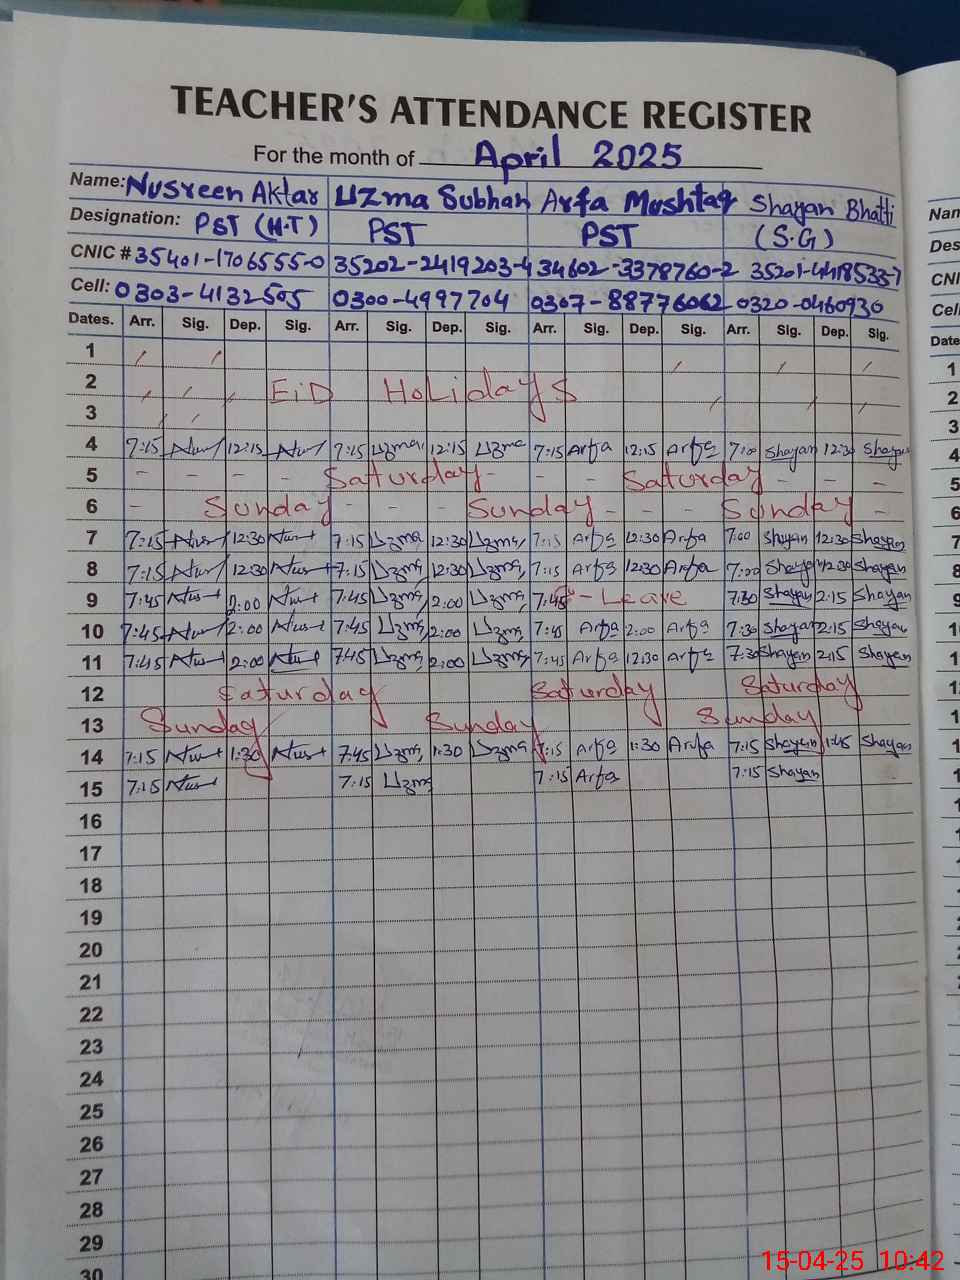 TEACHER'S ATTENDANCE REGISTER
For the month of April 2025
Name: Nusreen Aktar Uzma Subhan Arfa Mushtaq Shayan Bhatti
Designation: PST (H.T) PST PST (S.G)
CNIC # 35401-1706555-0 35202-2419203-4 34602-3378760-2 35201-4418533-7
Cell: 0303-4132505 0300-4997704 0307-88776062 0320-0460930
Dates. Arr. Sig. Dep. Sig. Arr. Sig. Dep. Sig. Arr. Sig. Dep. Sig. Arr. Sig. Dep. Sig.
1
2 EiD HoLidayS
3
4 7:15 12:15 7:15 Uzma 12:15 Uzma 7:15 Arfa 12:15 Arfa 7:00 Shayan 12:30 Shayan
5 - - - - Saturday - - - Saturday - - -
6 - Sunday - - - Sunday - - - - Sunday -
7 7:15 12:30 7:15 Uzma 12:30 Uzma 7:15 Arfa 12:30 Arfa 7:00 Shayan 12:30 Shayan
8 7:15 12:30 7:15 Uzma 12:30 Uzma 7:15 Arfa 12:30 Arfa 7:00 Shayan 12:30 Shayan
9 7:45 2:00 7:45 Uzma 2:00 Uzma 7:45 - Leave 7:30 Shayan 2:15 Shayan
10 7:45 2:00 7:45 Uzma 2:00 Uzma 7:45 Arfa 2:00 Arfa 7:30 Shayan 2:15 Shayan
11 7:45 2:00 7:45 Uzma 2:00 Uzma 7:45 Arfa 12:30 Arfa 7:30 Shayan 2:15 Shayan
12 Saturday Saturday Saturday
13 Sunday Sunday Sunday
14 7:15 1:30 7:45 Uzma 1:30 Uzma 7:15 Arfa 1:30 Arfa 7:15 Shayan 1:45 Shayan
15 7:15 7:15 Uzma 7:15 Arfa 7:15 Shayan
16
17
18
19
20
21
22
23
24
25
26
27
28
29
30
15-04-25 10:42